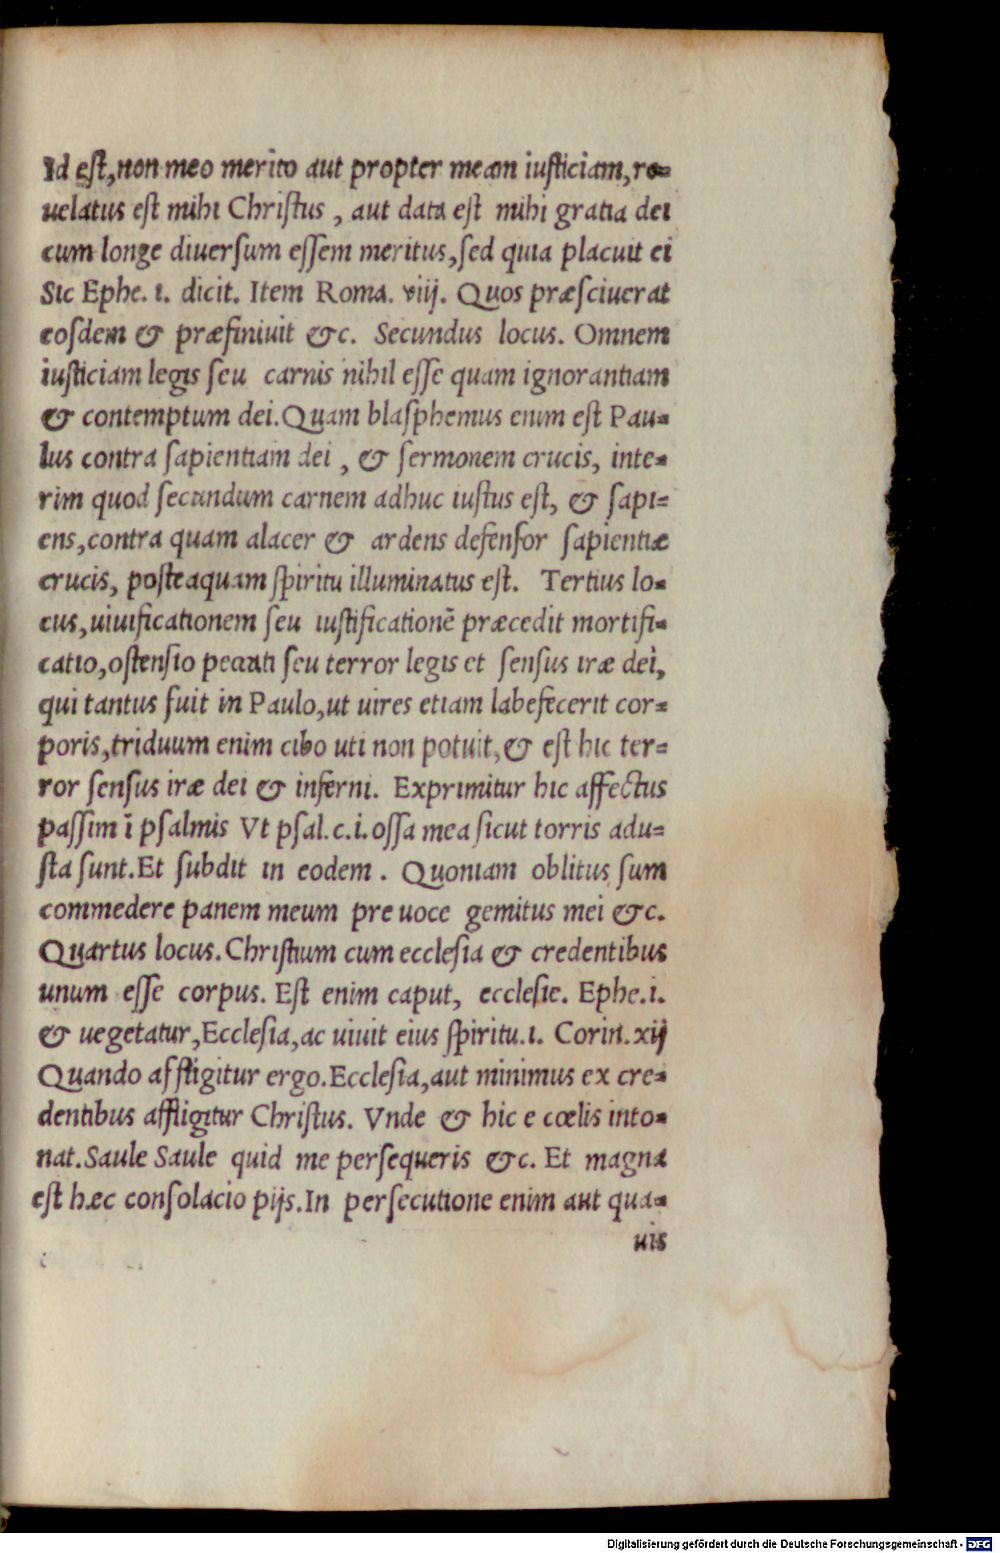 Id est, non meo merito aut propter meam iusticiam, re=
uelatus est mihi Christus, aut data est mihi gratia dei
cum longe diuersum essem meritus, sed quia placuit ei
Sic Ephe. 1. dicit. Item Roma. viij. Quos præsciuerat
eosdem & præfiniuit &c. Secundus locus. Omnem
iusticiam legis seu carnis nihil esse quam ignorantiam
& contemptum dei. Quam blasphemus enim est Pau=
lus contra sapientiam dei, & sermonem crucis, inte=
rim quod secundum carnem adhuc iustus est, & sapi=
ens, contra quam alacer & ardens defensor sapientiæ
crucis, posteaquam spiritu illuminatus est. Tertius lo=
cus, uiuificationem seu iustificationẽ præcedit mortifi=
catio, ostensio peccati seu terror legis et sensus iræ dei,
qui tantus fuit in Paulo, ut uires etiam labefecerit cor=
poris, triduum enim cibo uti non potuit, & est hic ter=
ror sensus iræ dei & inferni. Exprimitur hic affectus
passim ĩ psalmis Vt psal. c. i. ossa mea sicut torris adu=
sta sunt. Et subdit in eodem. Quoniam oblitus sum
commedere panem meum pre uoce gemitus mei &c.
Quartus locus. Christum cum ecclesia & credentibus
unum esse corpus. Est enim caput, ecclesie. Ephe. i.
& uegetatur, Ecclesia, ac uiuit eius spiritu. 1. Corin. xij
Quando affligitur ergo. Ecclesia, aut minimus ex cre=
dentibus affligitur Christus. Vnde & hic e cœlis into=
nat. Saule Saule quid me persequeris &c. Et magna
est hæc consolacio pijs. In persecutione enim aut qua=
uis
Digitalisierung gefördert durch die Deutsche Forschungsgemeinschaft - DFG